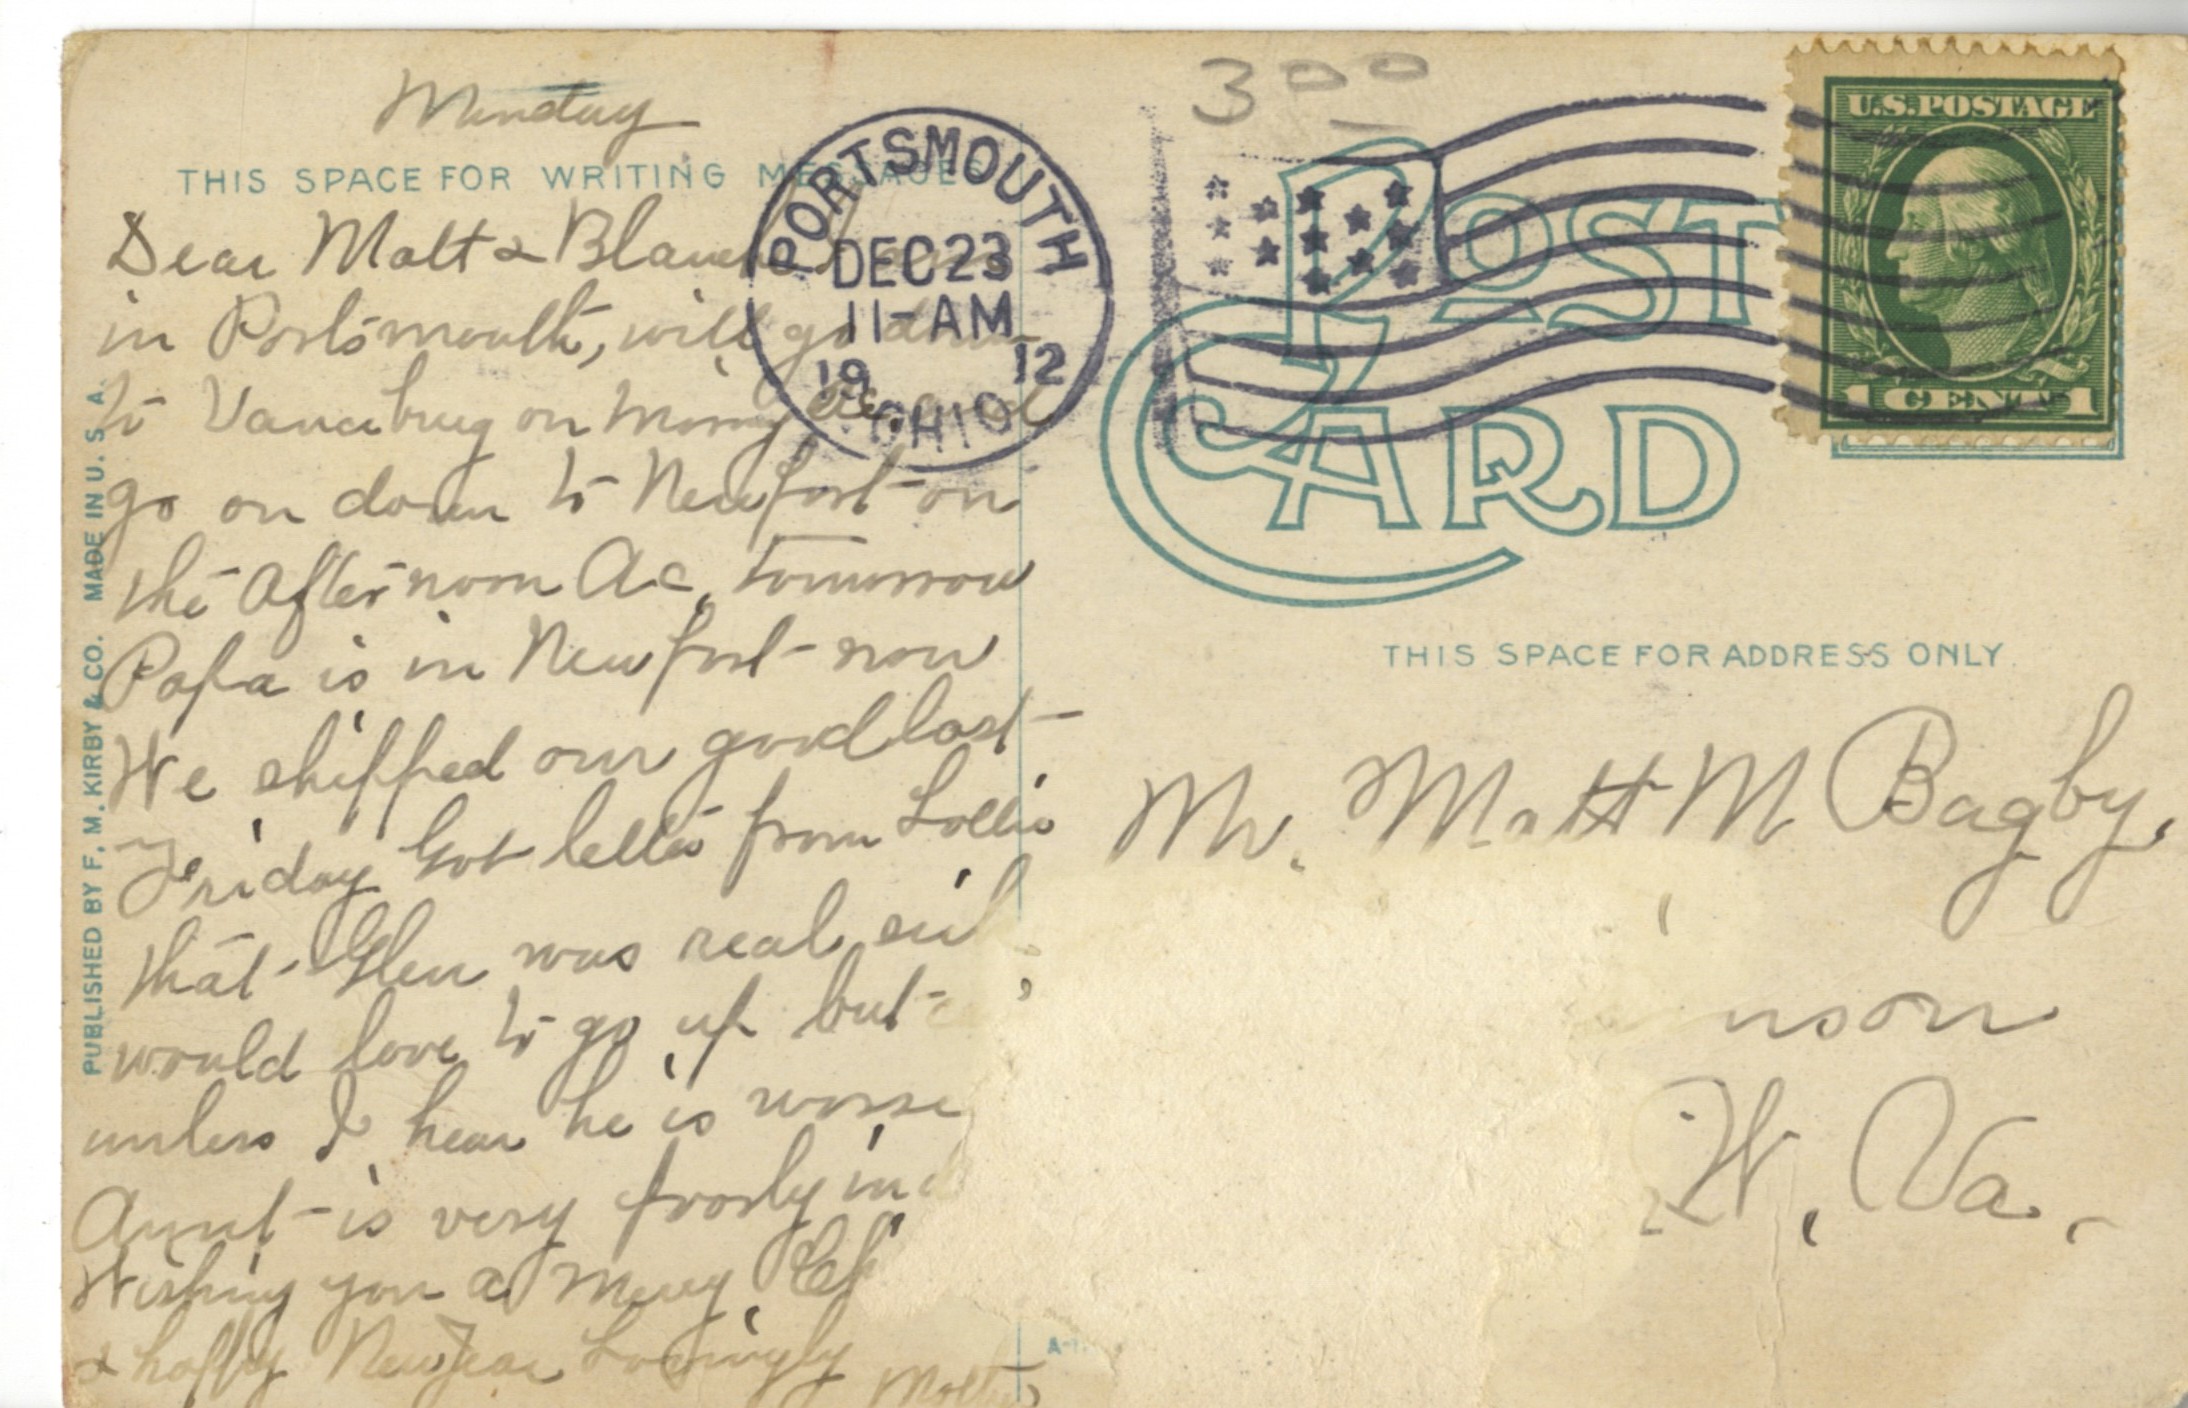 Monday
THIS SPACE FOR WRITING MESSAGES
Dear Matt & Blanche
in Portsmouth, will go down
to Vanceburg on Morning Ac. and
go on down to Newport on
the Afternoon Ac, tomorrow
Papa is in Newport now
We shipped our good last
Friday Got letter from Lollie
that Glen was real
would love to go up but
unless I hear he is worse
Aunt is very poorly
Wishing you a Merry Ch
& happy New Year Lovingly
Mother
PUBLISHED BY F. M. KIRBY & CO. MADE IN U. S. A.
PORTSMOUTH
DEC 23
11-AM
19 12
OHIO
300
U.S. POSTAGE
1 CENT 1
POST CARD
THIS SPACE FOR ADDRESS ONLY
Mr. Matt M Bagby,
nson
W. Va.